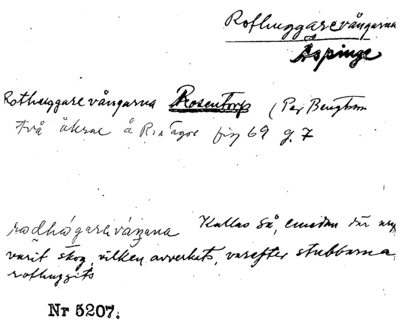 Rothuggarevångarna
Äspinge
Rothuggarevångarna Rosentorp (Per Bengtson
två åkrar å R:s ägor fig 69 g. 7
rodhógarevå̀ŋana Kallas så, emedan där
varit skog, vilken avverkats, varefter stubbarna
rothuggits
Nr 5207.